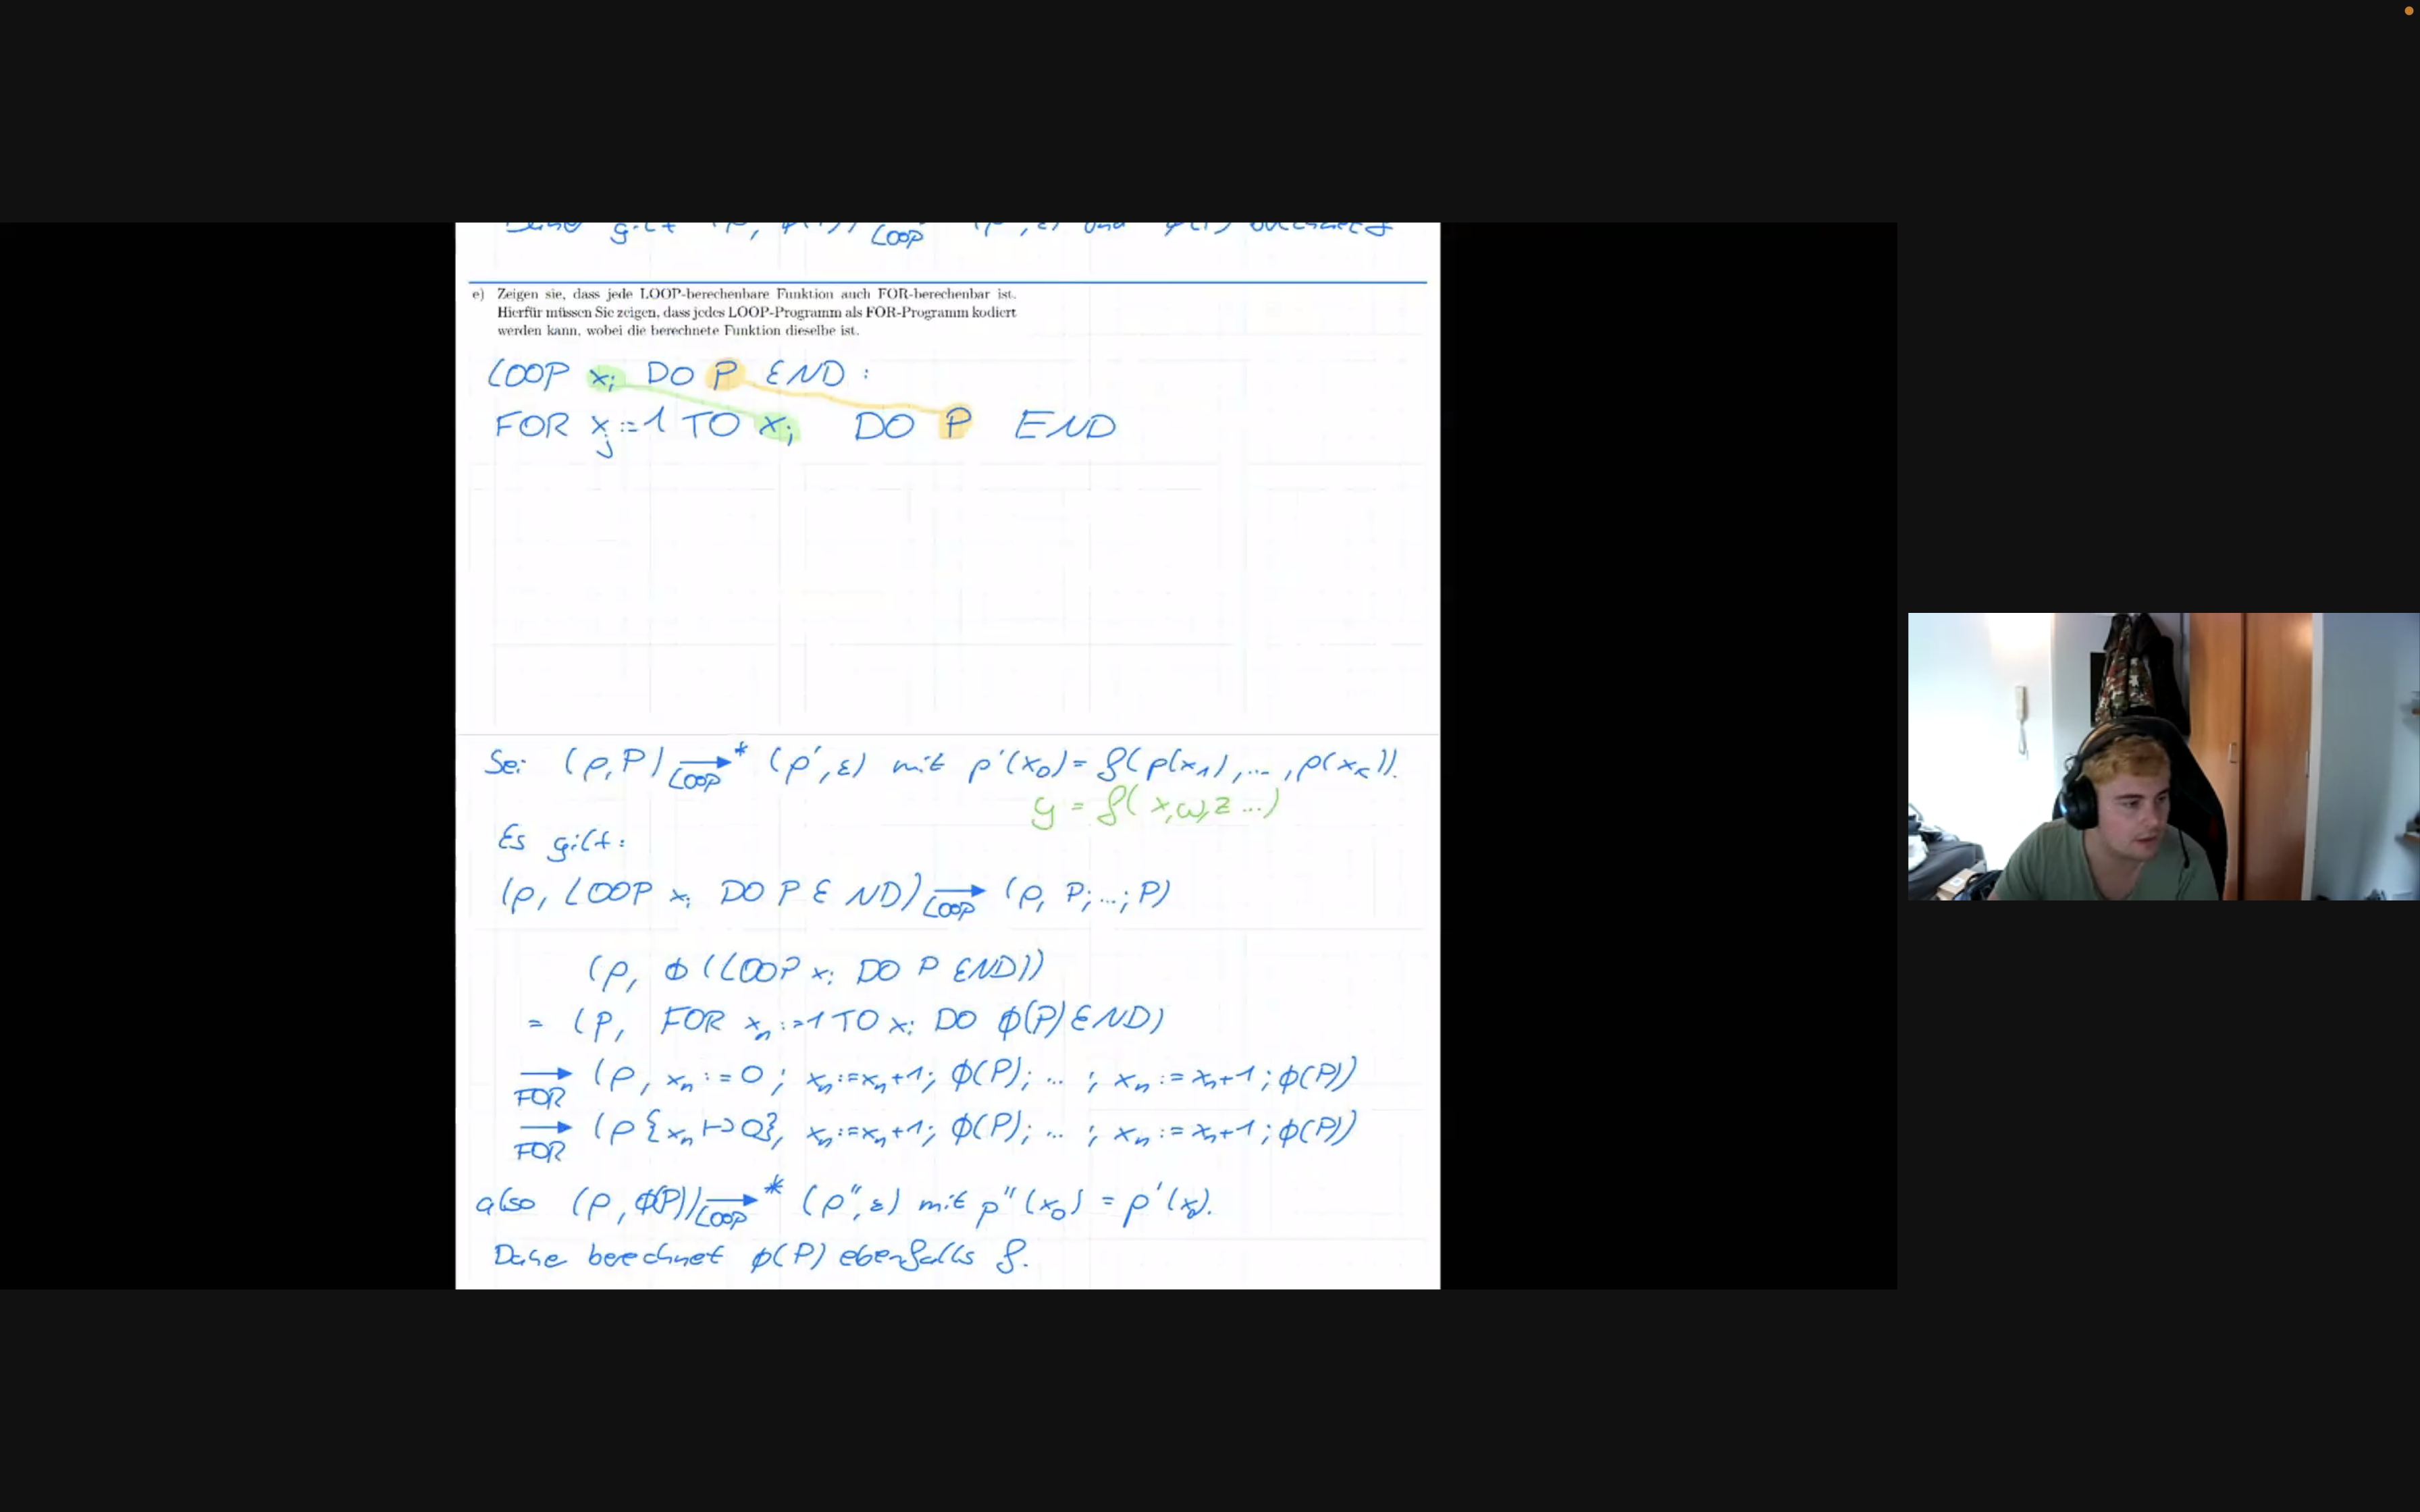 gilt LOOP und
e) Zeigen sie, dass jede LOOP-berechenbare Funktion auch FOR-berechenbar ist.
Hierfür müssen Sie zeigen, dass jedes LOOP-Programm als FOR-Programm kodiert
werden kann, wobei die berechnete Funktion dieselbe ist.
LOOP xᵢ DO P END :
FOR xⱼ := 1 TO xᵢ DO P END
Sei (ρ, P) →*LOOP (ρ', ε) mit ρ'(x₀) = f(ρ(x₁), ..., ρ(xₖ)).
y = f(x, w, z ...)
Es gilt:
(ρ, LOOP xᵢ DO P END) →LOOP (ρ, P; ...; P)
(ρ, ϕ(LOOP xᵢ DO P END))
= (ρ, FOR xₙ := 1 TO xᵢ DO ϕ(P) END)
→FOR (ρ, xₙ := 0; xₙ := xₙ+1; ϕ(P); ... ; xₙ := xₙ+1; ϕ(P))
→FOR (ρ{xₙ ↦ 0}, xₙ := xₙ+1; ϕ(P); ... ; xₙ := xₙ+1; ϕ(P))
also (ρ, ϕ(P)) →*LOOP (ρ'', ε) mit ρ''(x₀) = ρ'(x₀).
berechnet ϕ(P) ebenfalls f.